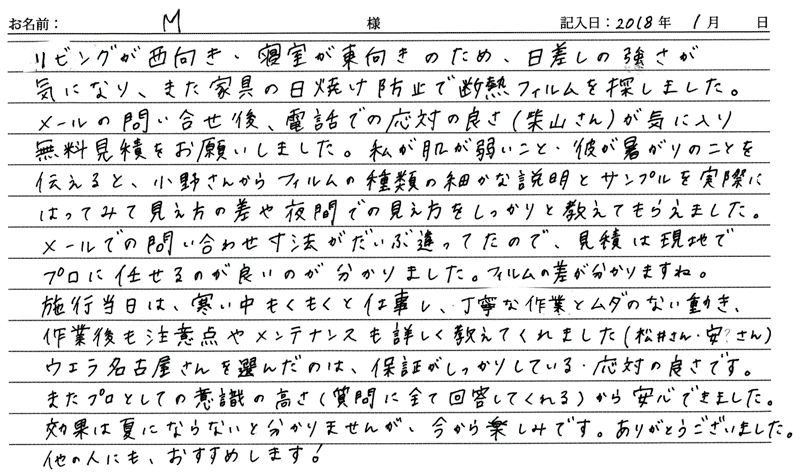 お名前： M 様 記入日：2018年 1月 日
リビングが西向き・寝室が東向きのため、日差しの強さが
気になり、また家具の日焼け防止で断熱フィルムを探しました。
メールの問い合せ後、電話での応対の良さ(柴山さん)が気に入り
無料見積をお願いしました。私が肌が弱いこと・彼が暑がりのことを
伝えると、小野さんからフィルムの種類の細かな説明とサンプルを実際に
はってみて見え方の差や夜間での見え方をしっかりと教えてもらえました。
メールでの問い合わせ寸法がだいぶ違ってたので、見積は現地で
プロに任せるのが良いのが分かりました。フィルムの差が分かりますね。
施行当日は、寒い中もくもくと仕事し、丁寧な作業とムダのない動き、
作業後も注意点やメンテナンスも詳しく教えてくれました(松井さん・安?さん)
ウエラ名古屋さんを選んだのは、保証がしっかりしている・応対の良さです。
またプロとしての意識の高さ(質問に全て回答してくれる)から安心できました。
効果は夏にならないと分かりませんが、今から楽しみです。ありがとうございました。
他の人にも、おすすめします!